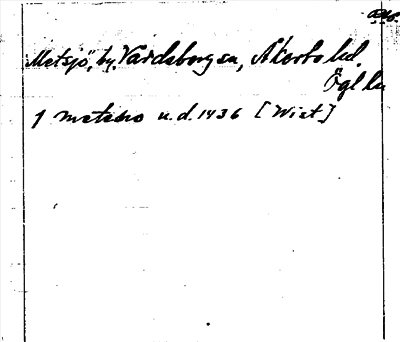 Metsjö, by, Vårdsberg sn, Åkerbo hd.
Ögl ln
1 metesio u.d. 1436 [Wiet]